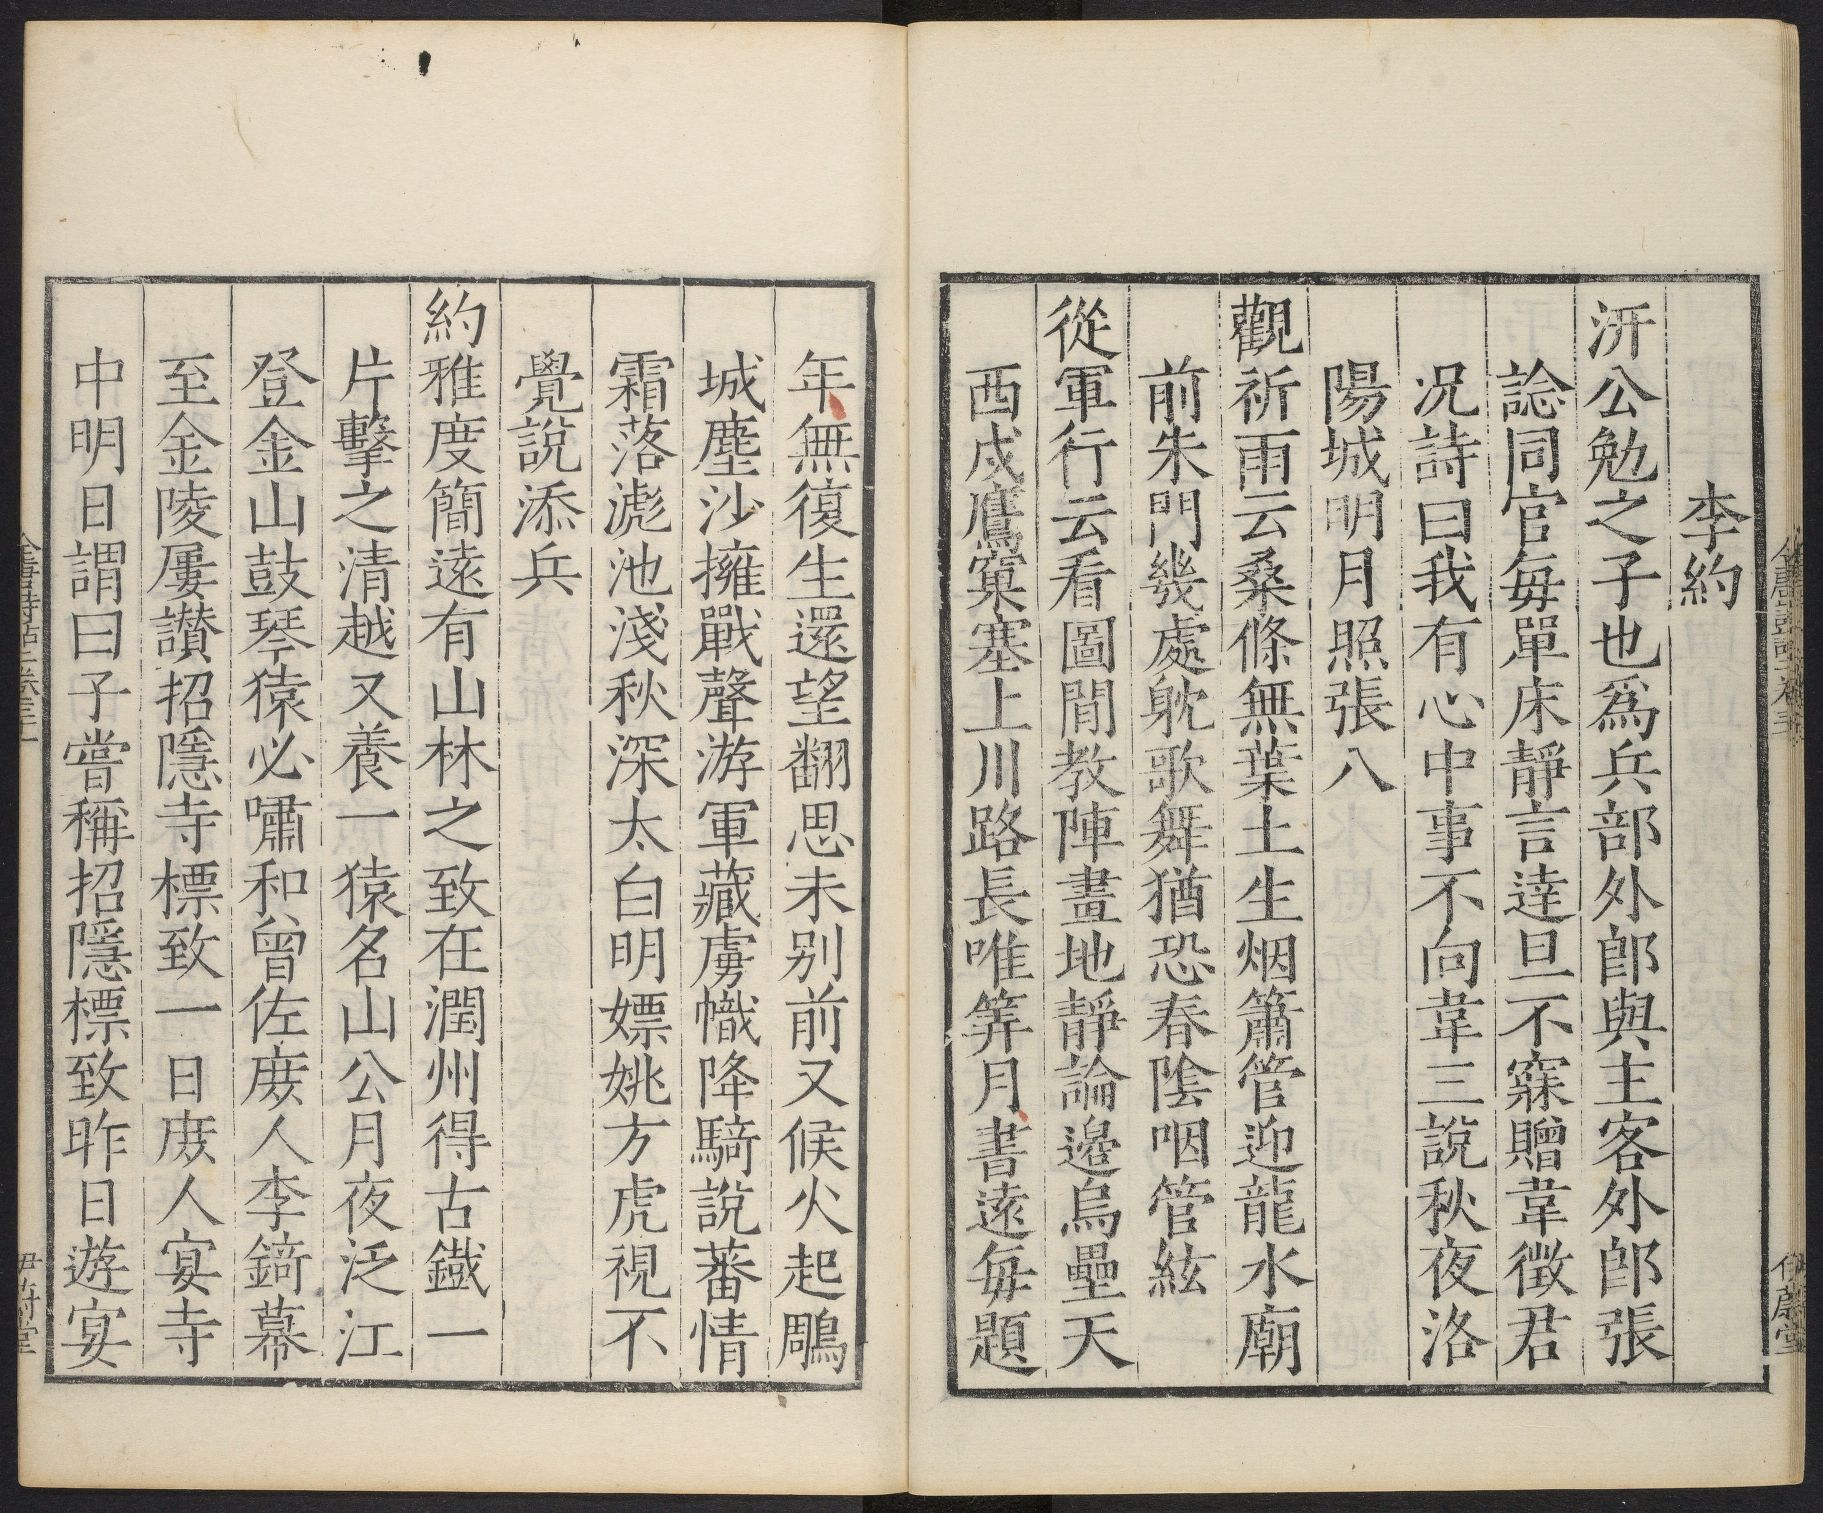 李約
汧公勉之子也爲兵部外郎與主客外郎張
諗同官每單床靜言達旦不寐贈韋徵君
况詩曰我有心中事不向韋三說秋夜洛
陽城明月照張八
觀祈雨云桑條無葉土生烟簫管迎龍水廟
前朱門幾處躭歌舞猶恐春陰咽管絃
從軍行云看圖閒教陣畫地靜論邉烏壘天
西戍鷹窠塞上川路長唯筭月書遠每題
年無復生還望翻思未别前又候火起鵰
城塵沙擁戰聲游軍藏虜幟降騎說蕃情
霜落滮池淺秋深太白明嫖姚方虎視不
覺說添兵
約雅度簡遠有山林之致在潤州得古鐵一
片擊之清越又養一猿名山公月夜泛江
登金山鼓琴猿必嘯和曾佐庻人李錡幕
至金陵屢讃招隱寺標致一日庻人宴寺
中明日謂曰子嘗稱招隱標致昨日遊宴